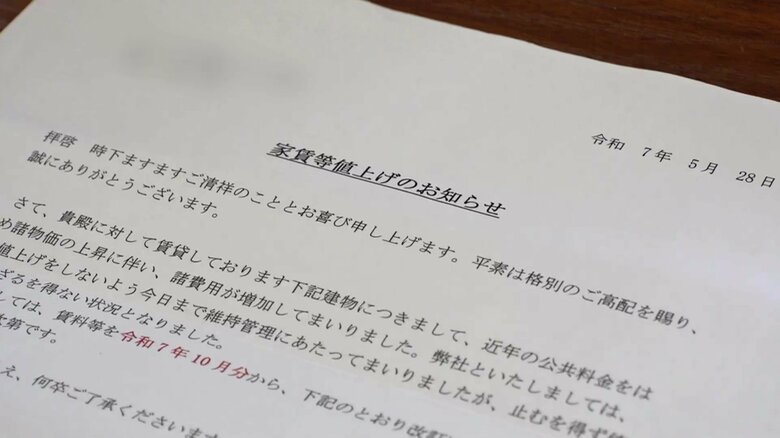 令和 7年 5月 28日
家賃等値上げのお知らせ
拝啓 時下ますますご清祥のこととお喜び申し上げます。平素は格別のご高配を賜り、
誠にありがとうございます。
さて、貴殿に対して賃貸しております下記建物につきまして、近年の公共料金をは
め諸物価の上昇に伴い、諸費用が増加してまいりました。弊社といたしましては、
値上げをしないよう今日まで維持管理にあたってまいりましたが、止むを得ず
ざるを得ない状況となりました。
しては、賃料等を令和7年10月分から、下記のとおり改訂
次第です。
え、何卒ご了承くださいます